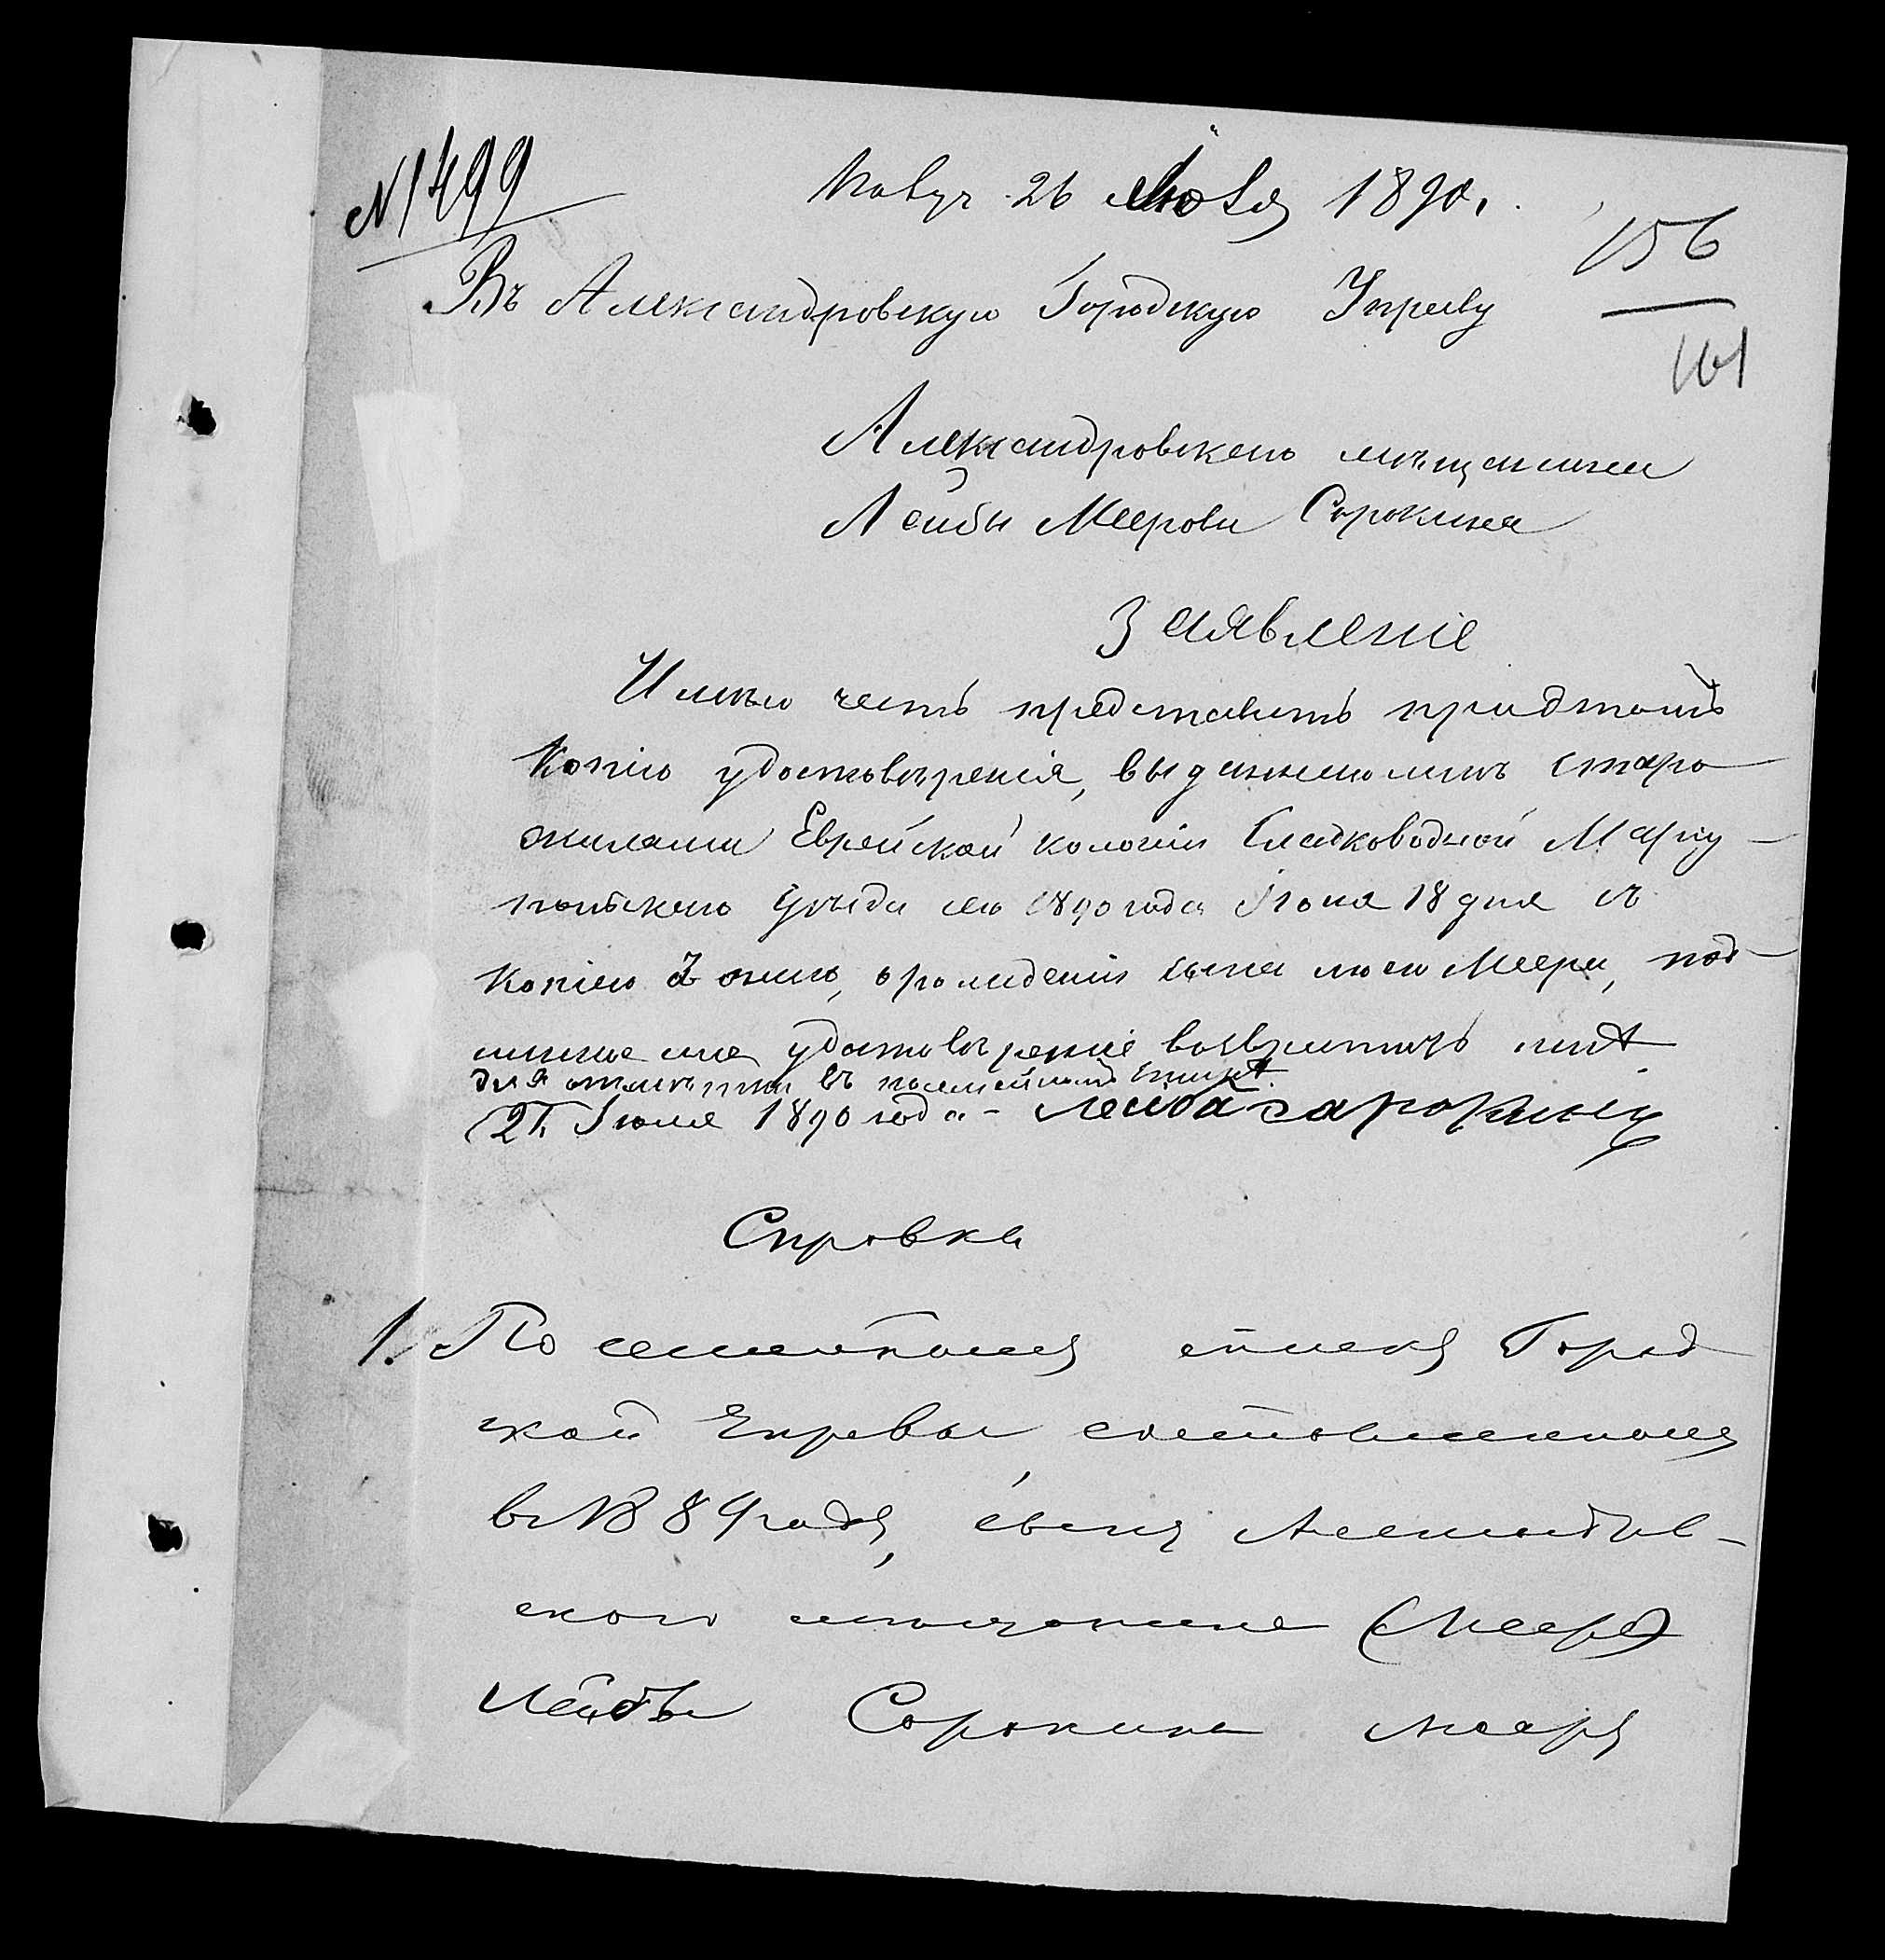 № 1499
Получ. 26 Июля 1890.
156
Въ Александровскую Городскую Управу
161
Александровскаго мѣщанина
Лейбы Меерова Сорокина
Заявленіе
Имѣю честь представить при этомъ
Копію удостовѣренія, выданнаго мнѣ старо
жилами Еврейской колоніи Сладководной Маріу-
польскаго уѣзда сего 1890 года Іюня 18 дня съ
копіею з оного, о рожденіи сына моего Меера, под-
линное мнѣ удостовѣреніе возвратить
для отмѣтки въ посемейномъ
26 Іюля 1890 года - Лейба Сарокинъ
Справка
1. По семейному списку Город
ской Управы, составленному
въ 1889 году, сынъ Александров-
скаго мѣщанина (Меера)
Лейбы Сорокина Мееръ